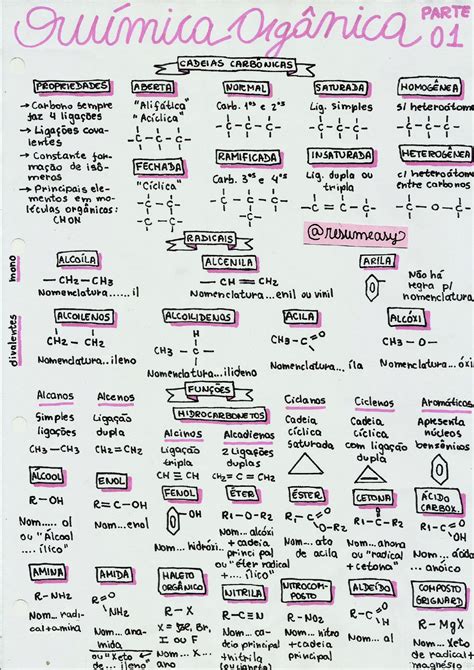 Química Orgânica PARTE 01
CADEIAS CARBÔNICAS
PROPRIEDADES
→ Carbono sempre
faz 4 ligações
→ Ligações cova-
lentes
→ Constante for-
mação de isô-
meros
→ Principais ele-
mentos em mo-
léculas orgânicas:
CHON
ABERTA
"Alifática"
"Acíclica"
-C-C-C-
FECHADA
"Cíclica"
NORMAL
Carb. 1ºs e 2ºs
-C-C-C-
RAMIFICADA
Carb. 3ºs e 4ºs
SATURADA
Lig. simples
-C-C-C-
INSATURADA
Lig. dupla ou
tripla
HOMOGÊNEA
s/ heteroátomo
-C-C-C-
HETEROGÊNEA
c/ heteroátomo
entre carbonos
@resumeasy
RADICAIS
mono
ALCOÍLA
- CH2 - CH3
Nomenclatura......il
ALCENILA
- CH = CH2
Nomenclatura...enil ou vinil
ARILA
Não há
regra p/
nomenclatura
divalentes
ALCOILENOS
- CH2 - CH2 -
Nomenclatura...ileno
ALCOILIDENOS
H
CH3 - C -
Nomenclatura...ilideno
ACILA
CH3 - C = O
Nomenclatura...ila
ALCÓXI
CH3 - O -
Nomenclatura...óxi
FUNÇÕES
HIDROCARBONETOS
Alcanos
Simples
ligações
CH3 - CH3
Alcenos
Ligação
dupla
CH2 = CH2
Alcinos
Ligação
tripla
CH ≡ CH
Alcadienos
2 Ligações
duplas
CH2 = C = CH2
Ciclanos
Cadeia
cíclica
saturada
Ciclenos
Cadeia
cíclica
com ligação
dupla
Aromáticos
Apresenta
núcleos
benzênicos
ÁLCOOL
R-OH
Nom.... ol
ou "Álcool
.... ílico"
ENOL
R=C-OH
Nom...enol
FENOL
OH
Nom... hidróxi
ÉTER
R1-O-R2
Nom... alcóxi
+ cadeia
principal
ou "éter radical
+.... ílico"
ÉSTER
R1-C=O
O-R2
Nom... ato
de acila
CETONA
R1-C-R2
Nom... ona
ou "radical
+cetona"
ÁCIDO
CARBOX.
R-C=O
OH
Nom... ácido
... anóico
AMINA
R - NH2
Nom... radi-
cal+amina
AMIDA
R-C=O
NH2
Nom... ana-
mida
HALETO
ORGÂNICO
R - X
X = F, Br,
I ou F
NITRILA
R - C≡N
Nom... ca-
deia principal
+nitrila
NITROCOM-
POSTO
R - NO2
Nom... nitro
+cadeia
principal
ALDEÍDO
R - C=O
H
Nom... al
COMPOSTO
GRIGNARD
R - MgX
Nom...
radical+